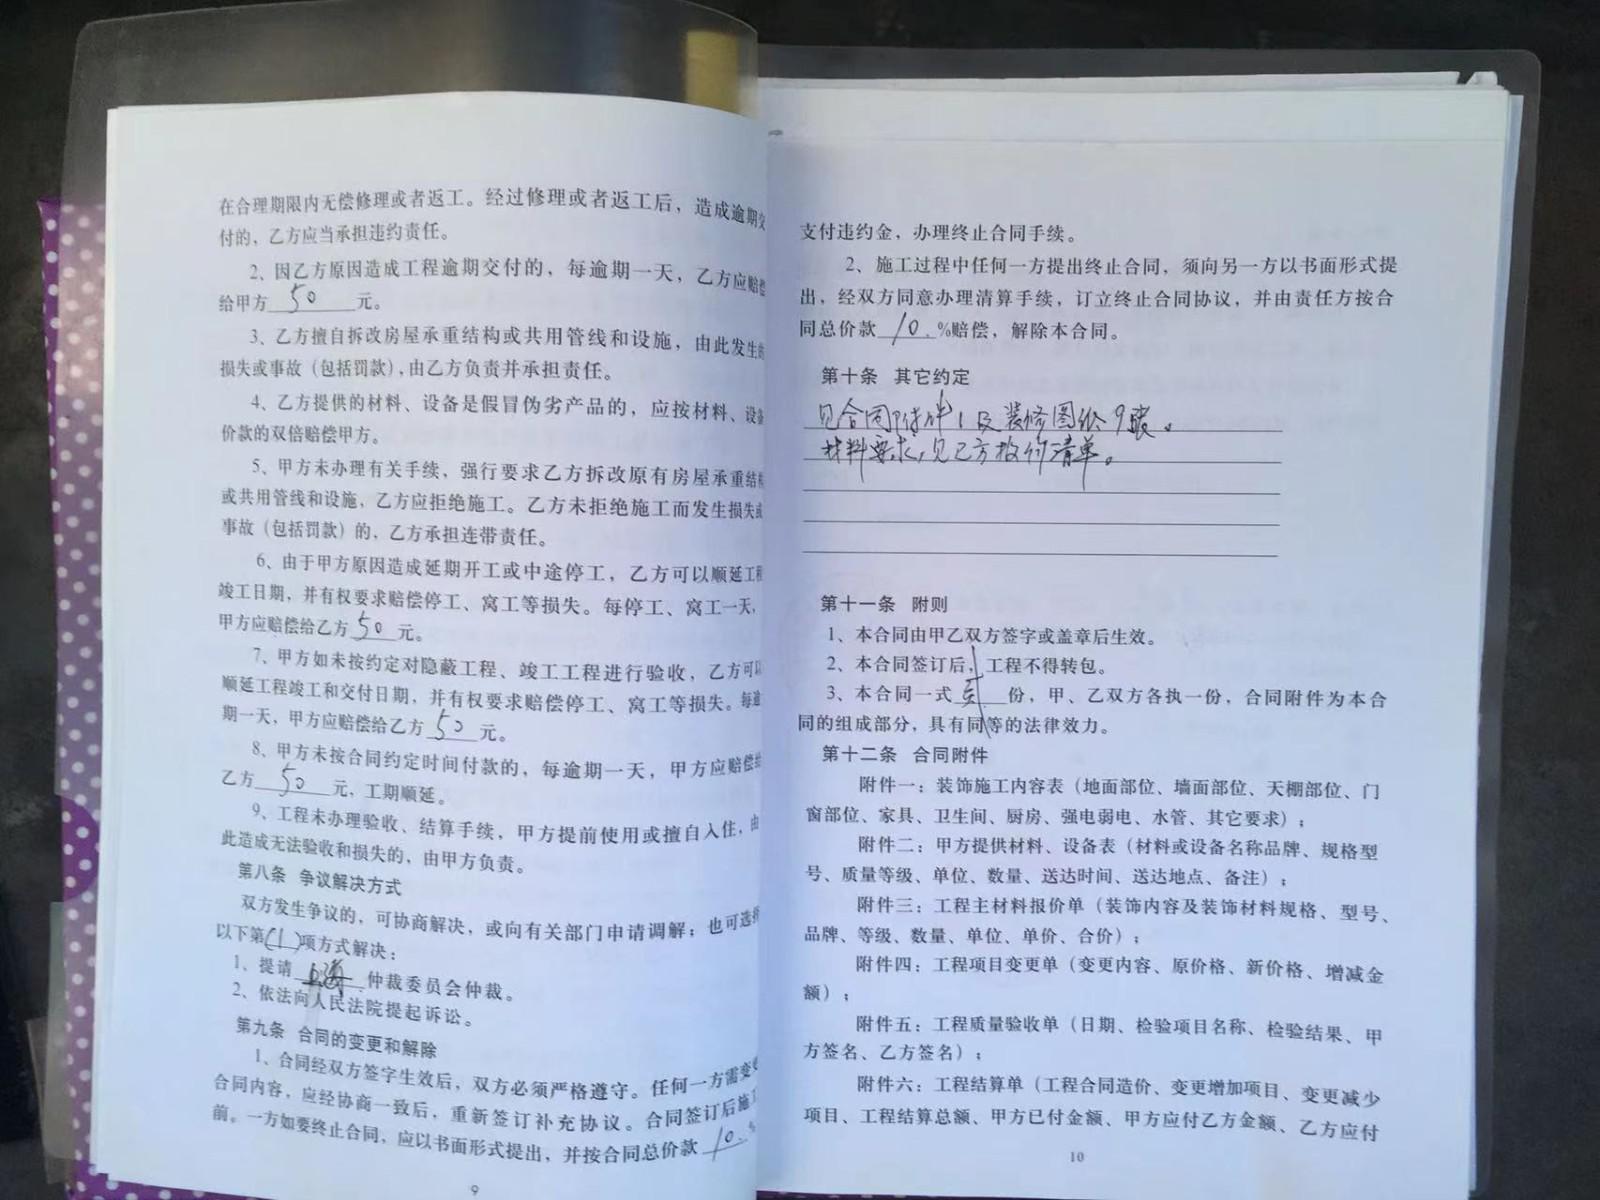 在合理期限内无偿修理或者返工。经过修理或者返工后，造成逾期交
付的，乙方应当承担违约责任。
2、因乙方原因造成工程逾期交付的，每逾期一天，乙方应赔偿
给甲方50元。
3、乙方擅自拆改房屋承重结构或共用管线和设施，由此发生的
损失或事故（包括罚款），由乙方负责并承担责任。
4、乙方提供的材料、设备是假冒伪劣产品的，应按材料、设备
价款的双倍赔偿甲方。
5、甲方未办理有关手续，强行要求乙方拆改原有房屋承重结构
或共用管线和设施，乙方应拒绝施工。乙方未拒绝施工而发生损失或
事故（包括罚款）的，乙方承担连带责任。
6、由于甲方原因造成延期开工或中途停工，乙方可以顺延工程
竣工日期，并有权要求赔偿停工、窝工等损失。每停工、窝工一天，
甲方应赔偿给乙方50元。
7、甲方如未按约定对隐蔽工程、竣工工程进行验收，乙方可以
顺延工程竣工和交付日期，并有权要求赔偿停工、窝工等损失。每逾
期一天，甲方应赔偿给乙方50元。
8、甲方未按合同约定时间付款的，每逾期一天，甲方应赔偿给
乙方50元，工期顺延。
9、工程未办理验收、结算手续，甲方提前使用或擅自入住，由
此造成无法验收和损失的，由甲方负责。
第八条 争议解决方式
双方发生争议的，可协商解决，或向有关部门申请调解；也可选择
以下第(1)项方式解决：
1、提请仲裁委员会仲裁。
2、依法向人民法院提起诉讼。
第九条 合同的变更和解除
1、合同经双方签字生效后，双方必须严格遵守。任何一方需变更
合同内容，应经协商一致后，重新签订补充协议。合同签订后施工
前。一方如要终止合同，应以书面形式提出，并按合同总价款10.%
9
支付违约金，办理终止合同手续。
2、施工过程中任何一方提出终止合同，须向另一方以书面形式提
出，经双方同意办理清算手续，订立终止合同协议，并由责任方按合
同总价款10.%赔偿，解除本合同。
第十条 其它约定
见合同附件1及装修图纸9张。
材料要求，见乙方报价清单。
第十一条 附则
1、本合同由甲乙双方签字或盖章后生效。
2、本合同签订后，工程不得转包。
3、本合同一式份，甲、乙双方各执一份，合同附件为本合
同的组成部分，具有同等的法律效力。
第十二条 合同附件
附件一：装饰施工内容表（地面部位、墙面部位、天棚部位、门
窗部位、家具、卫生间、厨房、强电弱电、水管、其它要求）；
附件二：甲方提供材料、设备表（材料或设备名称品牌、规格型
号、质量等级、单位、数量、送达时间、送达地点、备注）；
附件三：工程主材料报价单（装饰内容及装饰材料规格、型号、
品牌、等级、数量、单位、单价、合价）；
附件四：工程项目变更单（变更内容、原价格、新价格、增减金
额）；
附件五：工程质量验收单（日期、检验项目名称、检验结果、甲
方签名、乙方签名）；
附件六：工程结算单（工程合同造价、变更增加项目、变更减少
项目、工程结算总额、甲方已付金额、甲方应付乙方金额、乙方应付
10